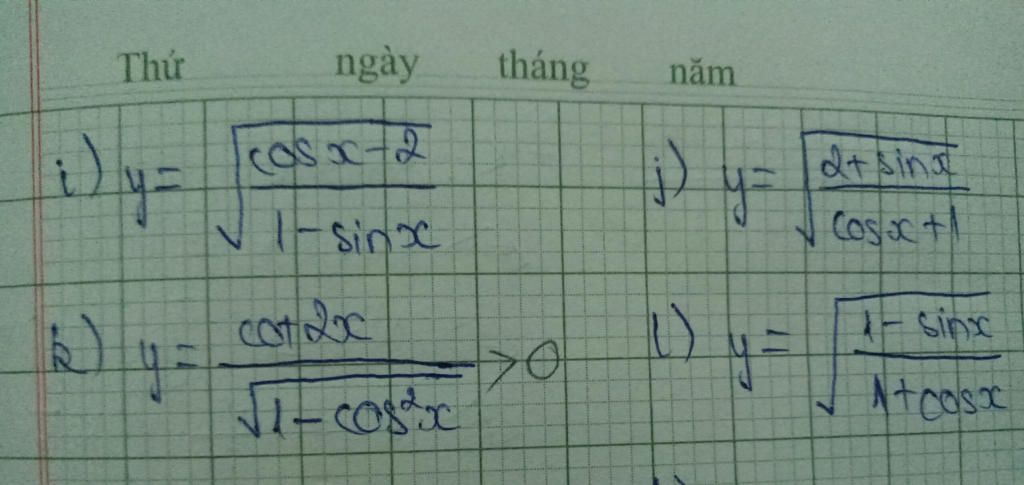 Thứ ngày tháng năm
i) y = √((cosx - 2)/(1 - sinx)) j) y = √((2 + sinx)/(cosx + 1))
k) y = cot2x/√(1 - cos²x) > 0 l) y = √((1 - sinx)/(1 + cosx))